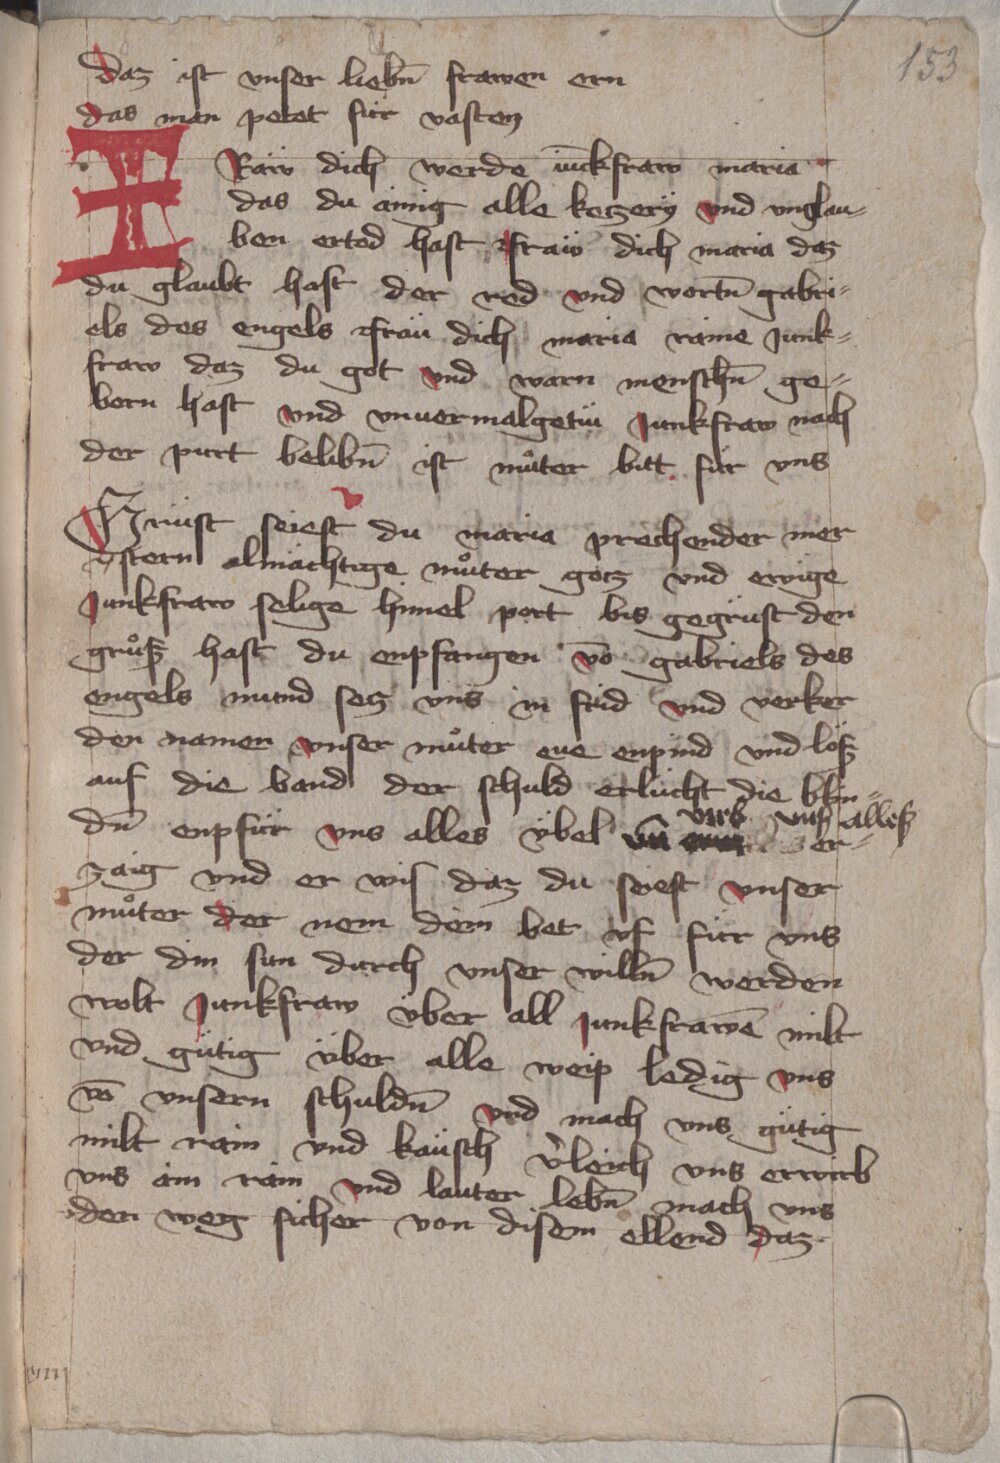 153
daz ist vnser liebn̄ frawen ern
das man petet für vasten
FRäw dich werde iūckfraw maria
das du ainig alle keczery vnd vnglau=
ben ertod hast fräw dich maria daz
du glaubt hast der red vnd wortn̄ gabri=
els des engels fräu dich maria raine Junk=
fraw daz du got vnd warn menschn̄ ge=
bern hast vnd vnuermalgetiu Junkfraw nach
der purt belibn̄ ist můter bitt für vns
Grüst seiest du maria prechender mer
stern almächtige můter gotz vnd ewige
Junkfraw selige himel port bis gegrüst den
grůsz hast du enpfangen vō gabriels des
engels mund secz vns in frid vnd verker
den namen vnser můter eue enpind vnd lösz
auf die band der schuld erlücht die blin=
dn̄ enpfür vns alles übel vn̄ er=
virb vns alles
zaig vnd er wis daz du seiest vnser
můter der nem dein bet vf für vns
der din sun durch vnser willn̄ werden
wolt Junkfraw über all Junkfrawē milt
vnd gütig über alle weip ledig vns
vō vnsern schuldn̄ vnd mach vns gütig
milt rain vnd käusch v̓leich vns erwirb
vns ain rain vnd lauter lebn̄ mach vns
den weg sicher von disem ellend daz